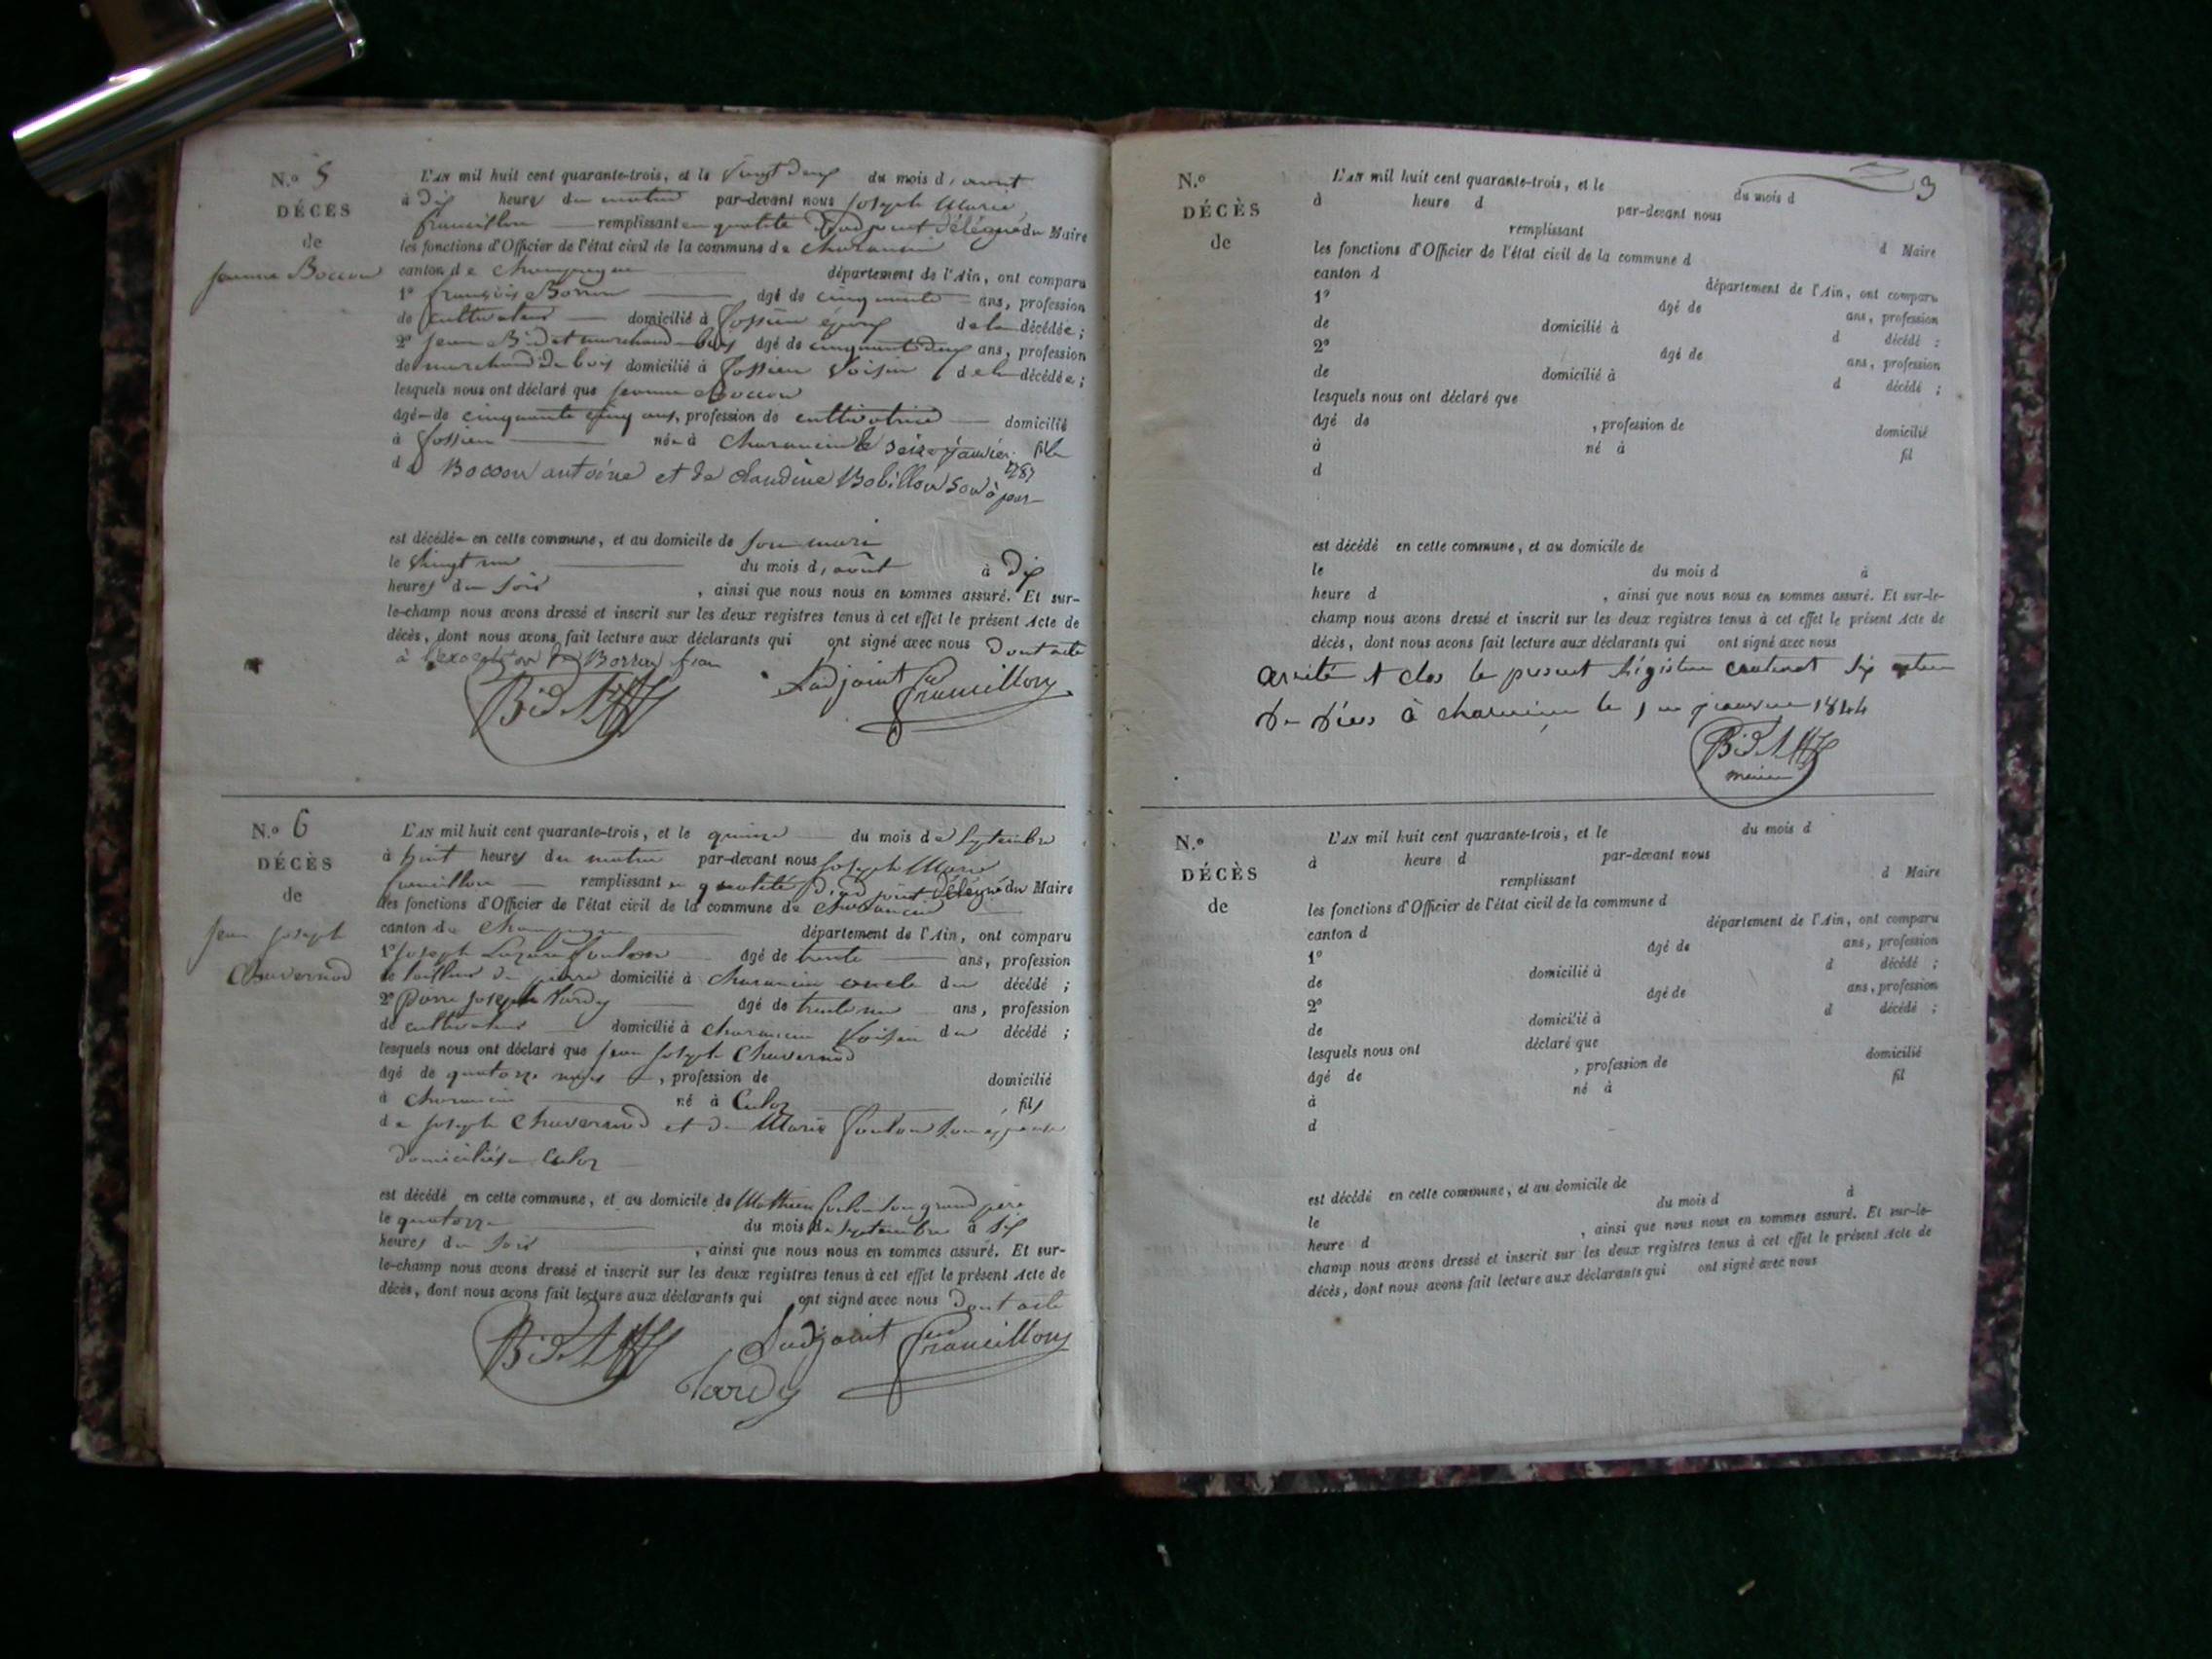 N.o 5
DÉCÈS
de
Jeanne Bocon
L'AN mil huit cent quarante-trois, et le vingt deux du mois d'août
à dix heures du matin par-devant nous Joseph Marie
francillon remplissant en qualité d'adjoint délégué du Maire
les fonctions d'Officier de l'état civil de la commune de Charancin
canton de Champagne département de l'Ain, ont comparu
1º françois Borron âgé de cinquante ans, profession
de Cultivateur domicilié à fossieu époux de la décédée ;
2º Jean Bidet marchand bois âgé de cinquante deux ans, profession
de marchand de bois domicilié à fossieu voisin de la décédée ;
lesquels nous ont déclaré que Jeanne Bocon
âgée de cinquante cinq ans, profession de cultivatrice domicilié
à fossieu née à Charancin le seize janvier 1787 fille
de Bocon antoine et de claudine Bobillon
est décédée en cette commune, et au domicile de son mari
le vingt un du mois d'août à dix
heures du soir , ainsi que nous nous en sommes assuré. Et sur-
le-champ nous avons dressé et inscrit sur les deux registres tenus à cet effet le présent Acte de
décès, dont nous avons fait lecture aux déclarants qui ont signé avec nous dont acte
à l'exception de Borron
L'adjoint Francillon
N.o 6
DÉCÈS
de
Jean Joseph
Chavernod
L'AN mil huit cent quarante-trois, et le quinze du mois de Septembre
à huit heures du matin par-devant nous Joseph Marie
francillon remplissant en qualité d'adjoint délégué du Maire
les fonctions d'Officier de l'état civil de la commune de Charancin
canton de Champagne département de l'Ain, ont comparu
1º Joseph Lazare foulon âgé de trente ans, profession
de tailleur de pierre domicilié à Charancin oncle du décédé ;
2º Pierre Joseph Tardy âgé de trente un ans, profession
de cultivateur domicilié à Charancin voisin du décédé ;
lesquels nous ont déclaré que Jean Joseph Chavernod
âgé de quatorze mois , profession de domicilié
à Charancin né à Culoz fils
de Joseph Chavernod et de Marie foulon son épouse
domiciliés à Culoz
est décédé en cette commune, et au domicile de Mathieu foulon son grand père
le quatorze du mois de Septembre à six
heures du soir , ainsi que nous nous en sommes assuré. Et sur-
le-champ nous avons dressé et inscrit sur les deux registres tenus à cet effet le présent Acte de
décès, dont nous avons fait lecture aux déclarants qui ont signé avec nous dont acte
L'adjoint Francillon
Tardy
3
N.o
DÉCÈS
de
L'AN mil huit cent quarante-trois, et le du mois d
à heure d par-devant nous
remplissant d Maire
les fonctions d'Officier de l'état civil de la commune d
canton d département de l'Ain, ont comparu
1º âgé de ans, profession
de domicilié à d décédé ;
2º âgé de ans, profession
de domicilié à d décédé ;
lesquels nous ont déclaré que
âgé de , profession de domicilié
à né à fil
d
est décédé en cette commune, et au domicile de
le du mois d à
heure d , ainsi que nous nous en sommes assuré. Et sur-le-
champ nous avons dressé et inscrit sur les deux registres tenus à cet effet le présent Acte de
décès, dont nous avons fait lecture aux déclarants qui ont signé avec nous
arrêté et clos le présent Régistre contenant six actes
de décès à charancin le 1er janvier 1844
maire
N.o
DÉCÈS
de
L'AN mil huit cent quarante-trois, et le du mois d
à heure d par-devant nous
remplissant d Maire
les fonctions d'Officier de l'état civil de la commune d
canton d département de l'Ain, ont comparu
1º âgé de ans, profession
de domicilié à d décédé ;
2º âgé de ans, profession
de domicilié à d décédé ;
lesquels nous ont déclaré que
âgé de , profession de domicilié
à né à fil
d
est décédé en cette commune, et au domicile de
le du mois d à
heure d , ainsi que nous nous en sommes assuré. Et sur-le-
champ nous avons dressé et inscrit sur les deux registres tenus à cet effet le présent Acte de
décès, dont nous avons fait lecture aux déclarants qui ont signé avec nous